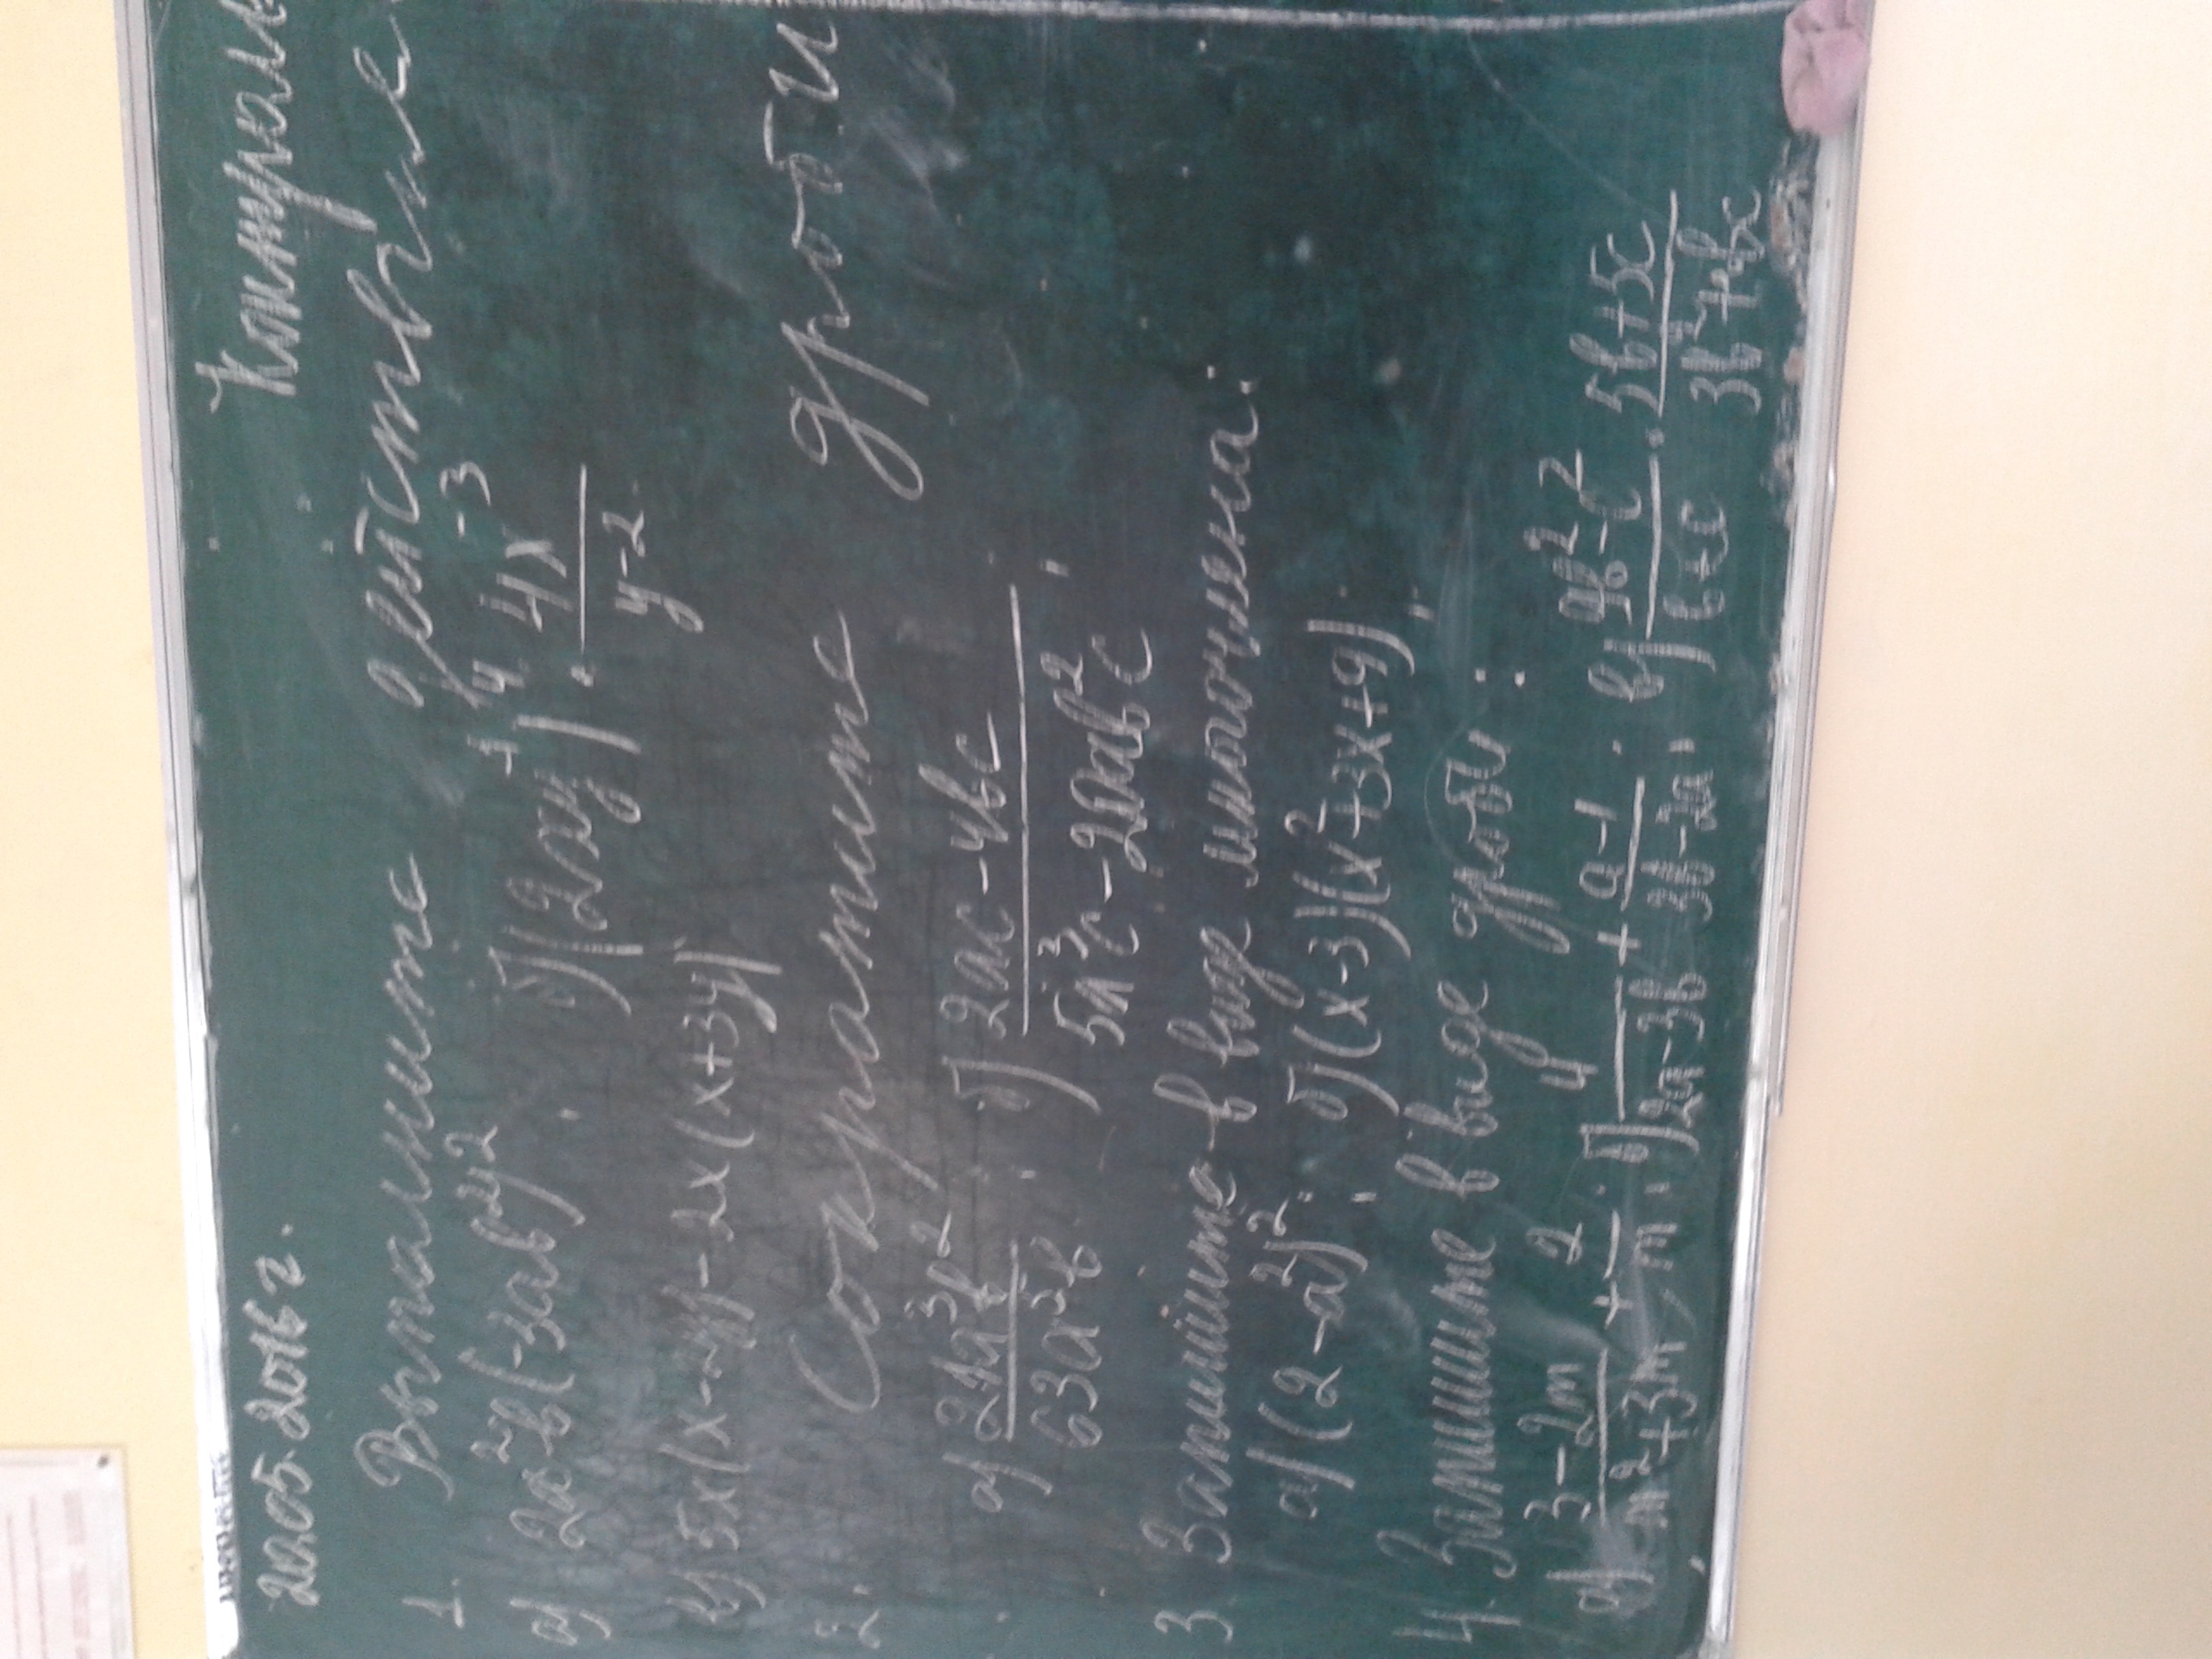 20.05.2016 г.
Контрольн
1. Выполните действие
а) 2a²b(-3ab⁴)²; б) (2xy⁻¹)⁴ · 4x⁻³/y⁻²
в) 5x(x-4y)-2x(x+3y)
2. Сократите дроби
а) 27a³b²/63a²b; б) 2ac-4bc/5a³c-20ab²c;
3. Запишите в виде многочлена:
а) (2-a²)²; б) (x-3)(x²+3x+9);
4. Запишите в виде дроби:
а) 3-2m/m²+3m + 2/m; б) 4/2a-3b + a-1/3b-2a; в) 9b²-c²/b+c · 5b+5c/3b²+bc